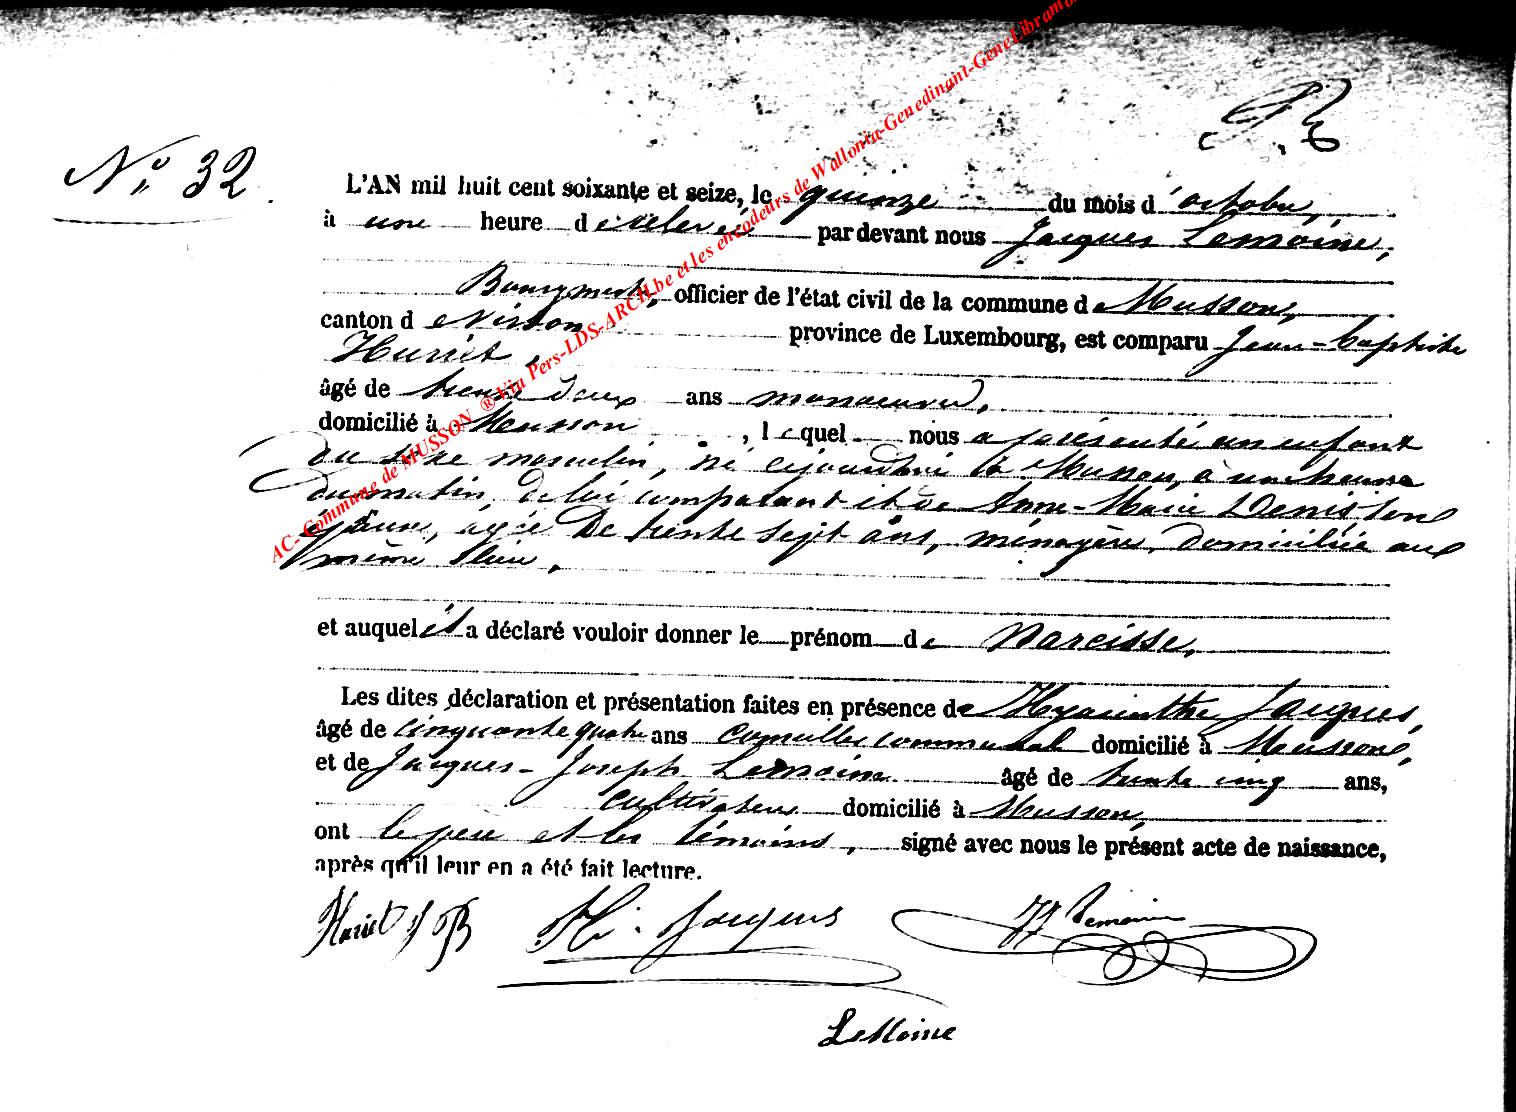 N.° 32
L'AN mil huit cent soixante et seize, le quinze du mois d'octobre,
à une heure de relevée par devant nous Jacques Lemoine,
Bourgmestre, officier de l'état civil de la commune de Musson,
canton de Virton province de Luxembourg, est comparu Jean-baptiste
Huriet,
âgé de trente deux ans manoeuvre,
domicilié à Musson, lequel nous a présenté un enfant
du sexe masculin, né cejourd'hui à Musson, à une heure
du matin, de lui comparant et de Anne-Marie Denis son
épouse, âgée de trente sept ans, ménagère, domiciliée au
même lieu.
et auquel il a déclaré vouloir donner le prénom de Narcisse,
Les dites déclaration et présentation faites en présence de Hyacinthe Jacques,
âgé de cinquante quatre ans conseiller communal domicilié à Musson,
et de Jacques-Joseph Lemoine âgé de trente cinq ans,
cultivateur domicilié à Musson,
ont le père et les témoins, signé avec nous le présent acte de naissance,
après qu'il leur en a été fait lecture.
Huriet J B H. Jacques JJ Lemoine
LeMoine
AC- Commune de MUSSON ® Via Pers-LDS-ARCH.be et les encodeurs de Wallonia-Genedinant-GeneLibramo